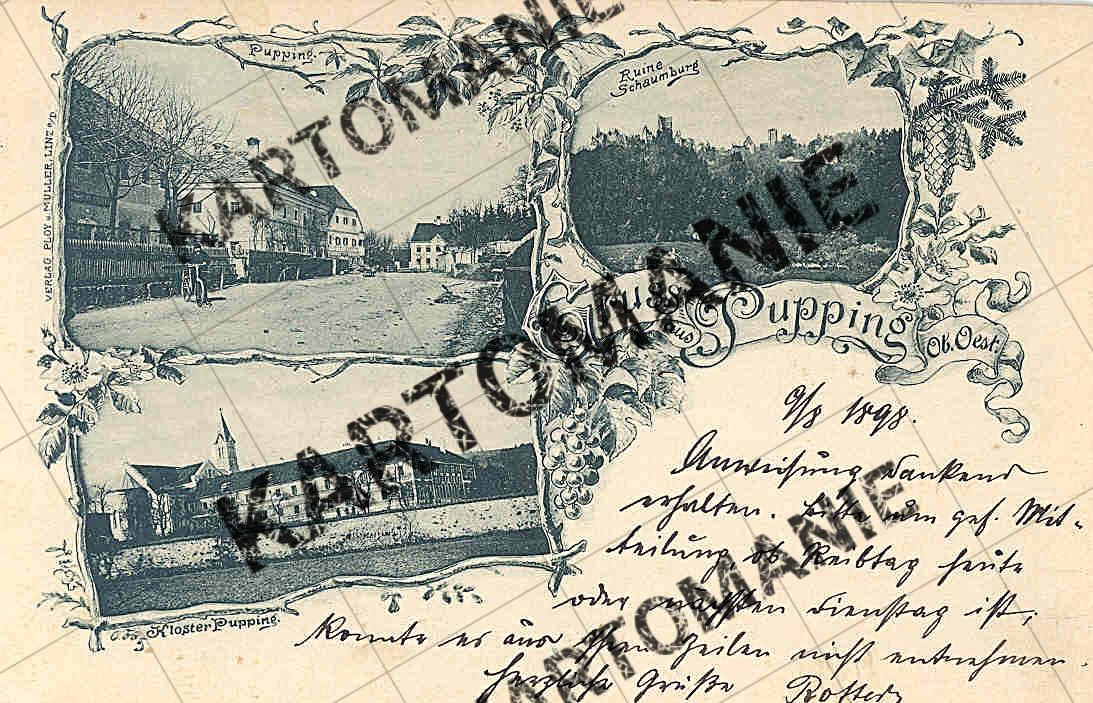 Pupping.
Ruine
Schaumburg
VERLAG PLOY u. MÜLLER, LINZ a/D.
Gruss
aus
Pupping
Ob. Oest.
Kloster Pupping.
9/8 1898.
Anweisung dankend
erhalten. Bitte um gef. Mit-
teilung, ob Reibtag heute
oder nächsten Dienstag ist,
konnte es aus Ihren Zeilen nicht entnehmen.
Herzliche Grüße
KARTOMANIE
KARTOMANIE
KARTOMANIE
KARTOMANIE